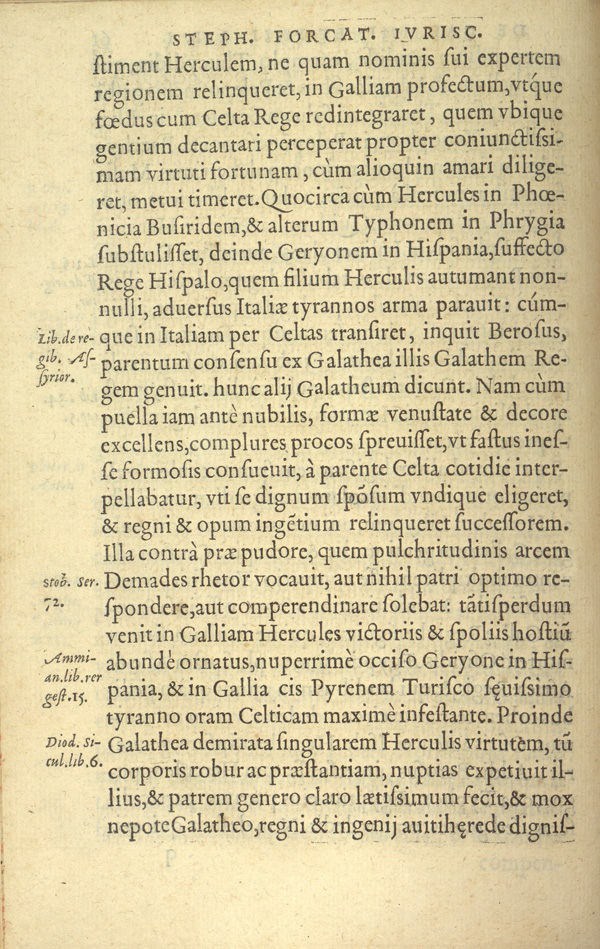 STEPH. FORCAT. IVRISC.
ſtiment Herculem, ne quam nominis ſui expertem
regionem relinqueret, in Galliam profectum, vtq́ue
fœdus cum Celta Rege redintegraret, quem vbique
gentium decantari perceperat propter coniunctiſsi-
mam virtuti fortunam, cùm alioquin amari dilige-
ret, metui timeret. Quocirca cùm Hercules in Phœ-
nicia Buſiridem, & alterum Typhonem in Phrygia
ſubſtuliſſet, deinde Geryonem in Hiſpania, ſuffecto
Rege Hiſpalo, quem filium Herculis autumant non-
nulli, aduerſus Italiæ tyrannos arma parauit: cúm-
Lib. de re-
gib. Aſ-
ſyrior.
que in Italiam per Celtas tranſiret, inquit Beroſus,
parentum conſenſu ex Galathea illis Galathem Re-
gem genuit. hunc alij Galatheum dicunt. Nam cùm
puella iam antè nubilis, formæ venuſtate & decore
excellens, complures procos ſpreuiſſet, vt faſtus ineſ-
ſe formoſis conſueuit, à parente Celta cotidie inter-
pellabatur, vti ſe dignum ſpõſum vndique eligeret,
& regni & opum ingẽtium relinqueret ſucceſſorem.
Illa contrà præ pudore, quem pulchritudinis arcem
Stob. Ser.
72.
Demades rhetor vocauit, aut nihil patri optimo re-
ſpondere, aut comperendinare ſolebat: tãtiſperdum
venit in Galliam Hercules victoriis & ſpoliis hoſtiũ
Ammi-
an. lib. rer
geſt. 15.
abundè ornatus, nuperrimè occiſo Geryone in Hiſ-
pania, & in Gallia cis Pyrenem Turiſco ſęuiſsimo
tyranno oram Celticam maximè infeſtante. Proinde
Diod. Si-
cul. lib. 6.
Galathea demirata ſingularem Herculis virtutèm, tũ
corporis robur ac præſtantiam, nuptias expetiuit il-
lius, & patrem genero claro lætiſsimum fecit, & mox
nepote Galatheo, regni & ingenij auiti hęrede digniſ-